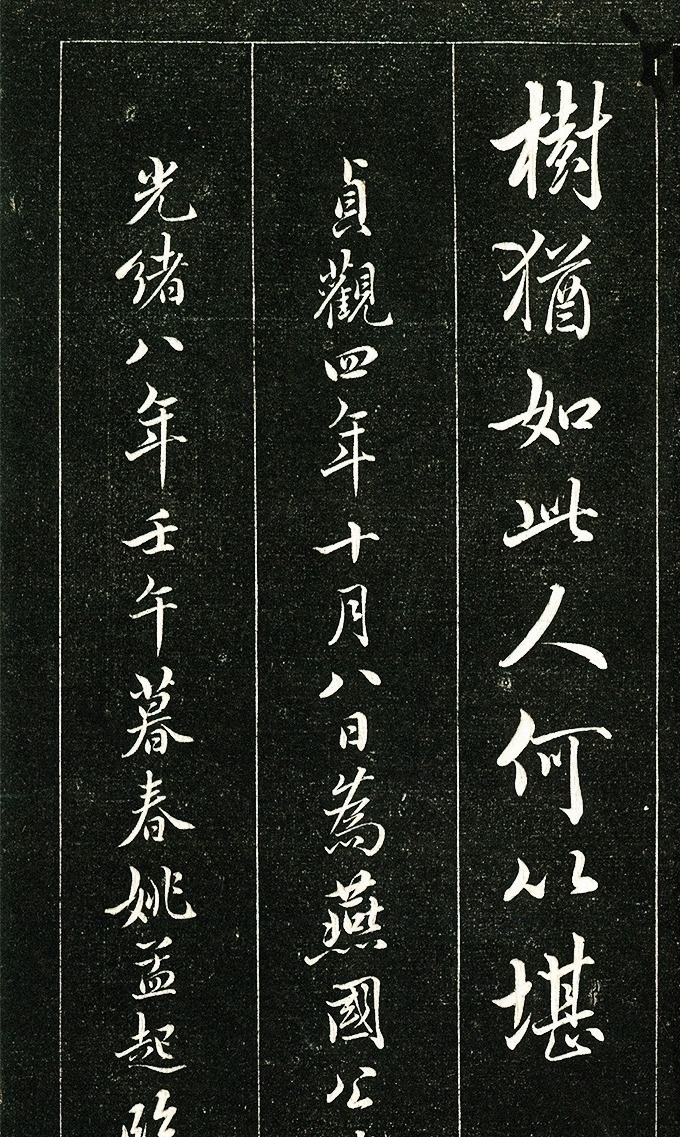 樹猶如此人何以堪
貞觀四年十月八日為燕國公
光緒八年壬午暮春姚孟起臨